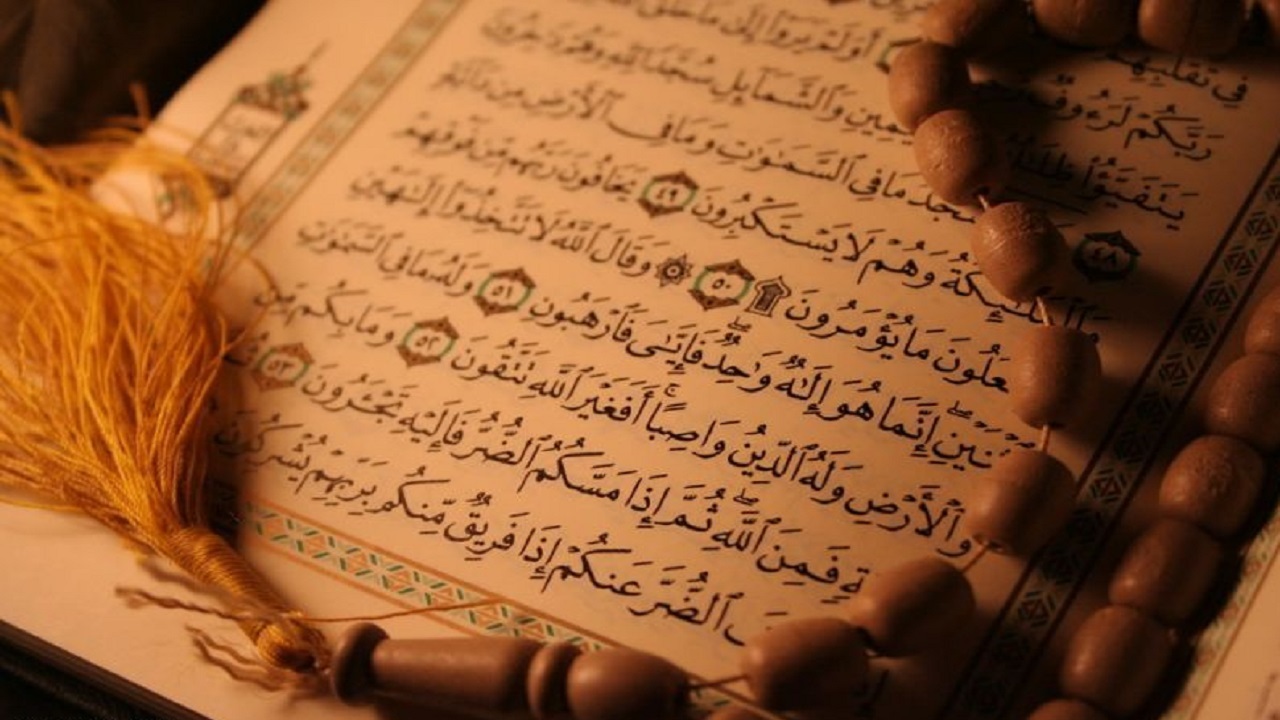 فِى تَقَلُّبِهِمْ
رَبَّكُمْ لَرَءُوفٌ أَوَلَمْ يَرَوْا۟ إِلَىٰ مَا خَلَقَ
يَتَفَيَّؤُا۟ ظِلَٰلُهُۥ وَٱلشَّمَآئِلِ سُجَّدًا لِّلَّهِ وَهُمْ دَٰخِرُونَ
﴿٤٨﴾ يَسْجُدُ مَا فِى ٱلسَّمَٰوَٰتِ وَمَا فِى ٱلْأَرْضِ مِن دَآبَّةٍ
وَٱلْمَلَٰٓئِكَةُ وَهُمْ لَا يَسْتَكْبِرُونَ ﴿٤٩﴾ يَخَافُونَ رَبَّهُم مِّن فَوْقِهِمْ
وَيَفْعَلُونَ مَا يُؤْمَرُونَ ۩ ﴿٥٠﴾ ۞ وَقَالَ ٱللَّهُ لَا تَتَّخِذُوٓا۟ إِلَٰهَيْنِ
ٱثْنَيْنِ ۖ إِنَّمَا هُوَ إِلَٰهٌ وَٰحِدٌ ۖ فَإِيَّٰىَ فَٱرْهَبُونِ ﴿٥١﴾ وَلَهُۥ مَا فِى ٱلسَّمَٰوَٰتِ
وَٱلْأَرْضِ وَلَهُ ٱلدِّينُ وَاصِبًا ۚ أَفَغَيْرَ ٱللَّهِ تَتَّقُونَ ﴿٥٢﴾ وَمَا بِكُم مِّن
فَمِنَ ٱللَّهِ ۖ ثُمَّ إِذَا مَسَّكُمُ ٱلضُّرُّ فَإِلَيْهِ تَجْـَٔرُونَ ﴿٥٣﴾ ثُمَّ
ٱلضُّرَّ عَنكُمْ إِذَا فَرِيقٌ مِّنكُم بِرَبِّهِمْ يُشْرِكُونَ